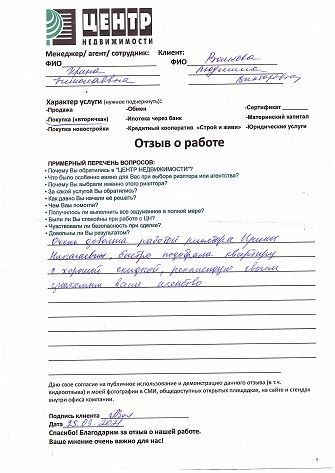 ЦЕНТР
НЕДВИЖИМОСТИ
Менеджер/ агент/ сотрудник: Клиент:
ФИО Ирина ФИО
Николаевна Людмила
Викторовна
Характер услуги (нужное подчеркнуть):
-Продажа -Обмен -Сертификат
-Покупка («вторичка») -Ипотека через банк -Материнский капитал
-Покупка новостройки -Кредитный кооператив «Строй и живи» -Юридические услуги
Отзыв о работе
ПРИМЕРНЫЙ ПЕРЕЧЕНЬ ВОПРОСОВ:
• Почему Вы обратились в "ЦЕНТР НЕДВИЖИМОСТИ"?
• Что было особенно важно для Вас при выборе риэлтора или агентства?
• Почему Вы выбрали именно этого риэлтора?
• За какой услугой Вы обратились?
• Как давно Вы начали ее решать?
• Чем Вам помогли?
• Получилось ли выполнить все задуманное в полной мере?
• Были ли Вы спокойны при работе с ЦН?
• Чувствовали ли безопасность при сделке?
• Довольны ли Вы результатом?
Очень довольна работой риэлтора Ирины
Николаевны, быстро подобрала квартиру
с хорошей скидкой, рекомендую своим
знакомым ваше агентство
Даю свое согласие на публичное использование и демонстрацию данного отзыва (в т.ч.
видеоотзыва) и моей фотографии в СМИ, общедоступных открытых площадках, на сайте и стендах
внутри офиса компании.
Подпись клиента
Дата 25.03.2021
Спасибо! Благодарим за отзыв о нашей работе.
Ваше мнение очень важно для нас!